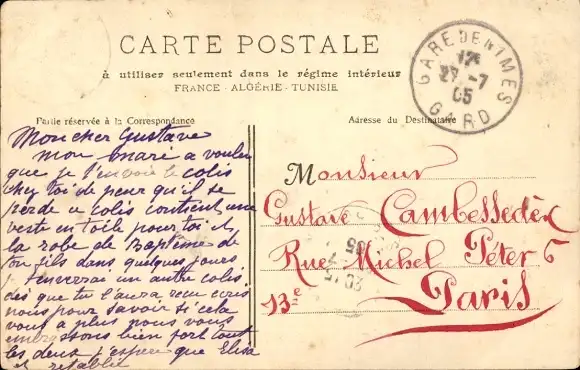 CARTE POSTALE
à utiliser seulement dans le régime intérieur
FRANCE - ALGÉRIE - TUNISIE
GARE DE NIMES
12
27 -7
05
GARD
Partie réservée à la Correspondance
Mon cher Gustave
mon mari a voulu
que je t'envoie le colis
chez toi de peur qu'il se
perde ce colis contient une
veste en toile pour toi et
la robe de Baptème de
ton fils dans quelques jours
t'enverrai un autre colis
dès que tu l'aura reçu ecris
nous pour savoir si cela
vous a plus nous vous
embrassons bien fort tout
les deux j'espère que Elisa
et rétablie
Adresse du Destinataire
Monsieur
Gustave Cambessedès
Rue Michel Péter 6
13e Paris